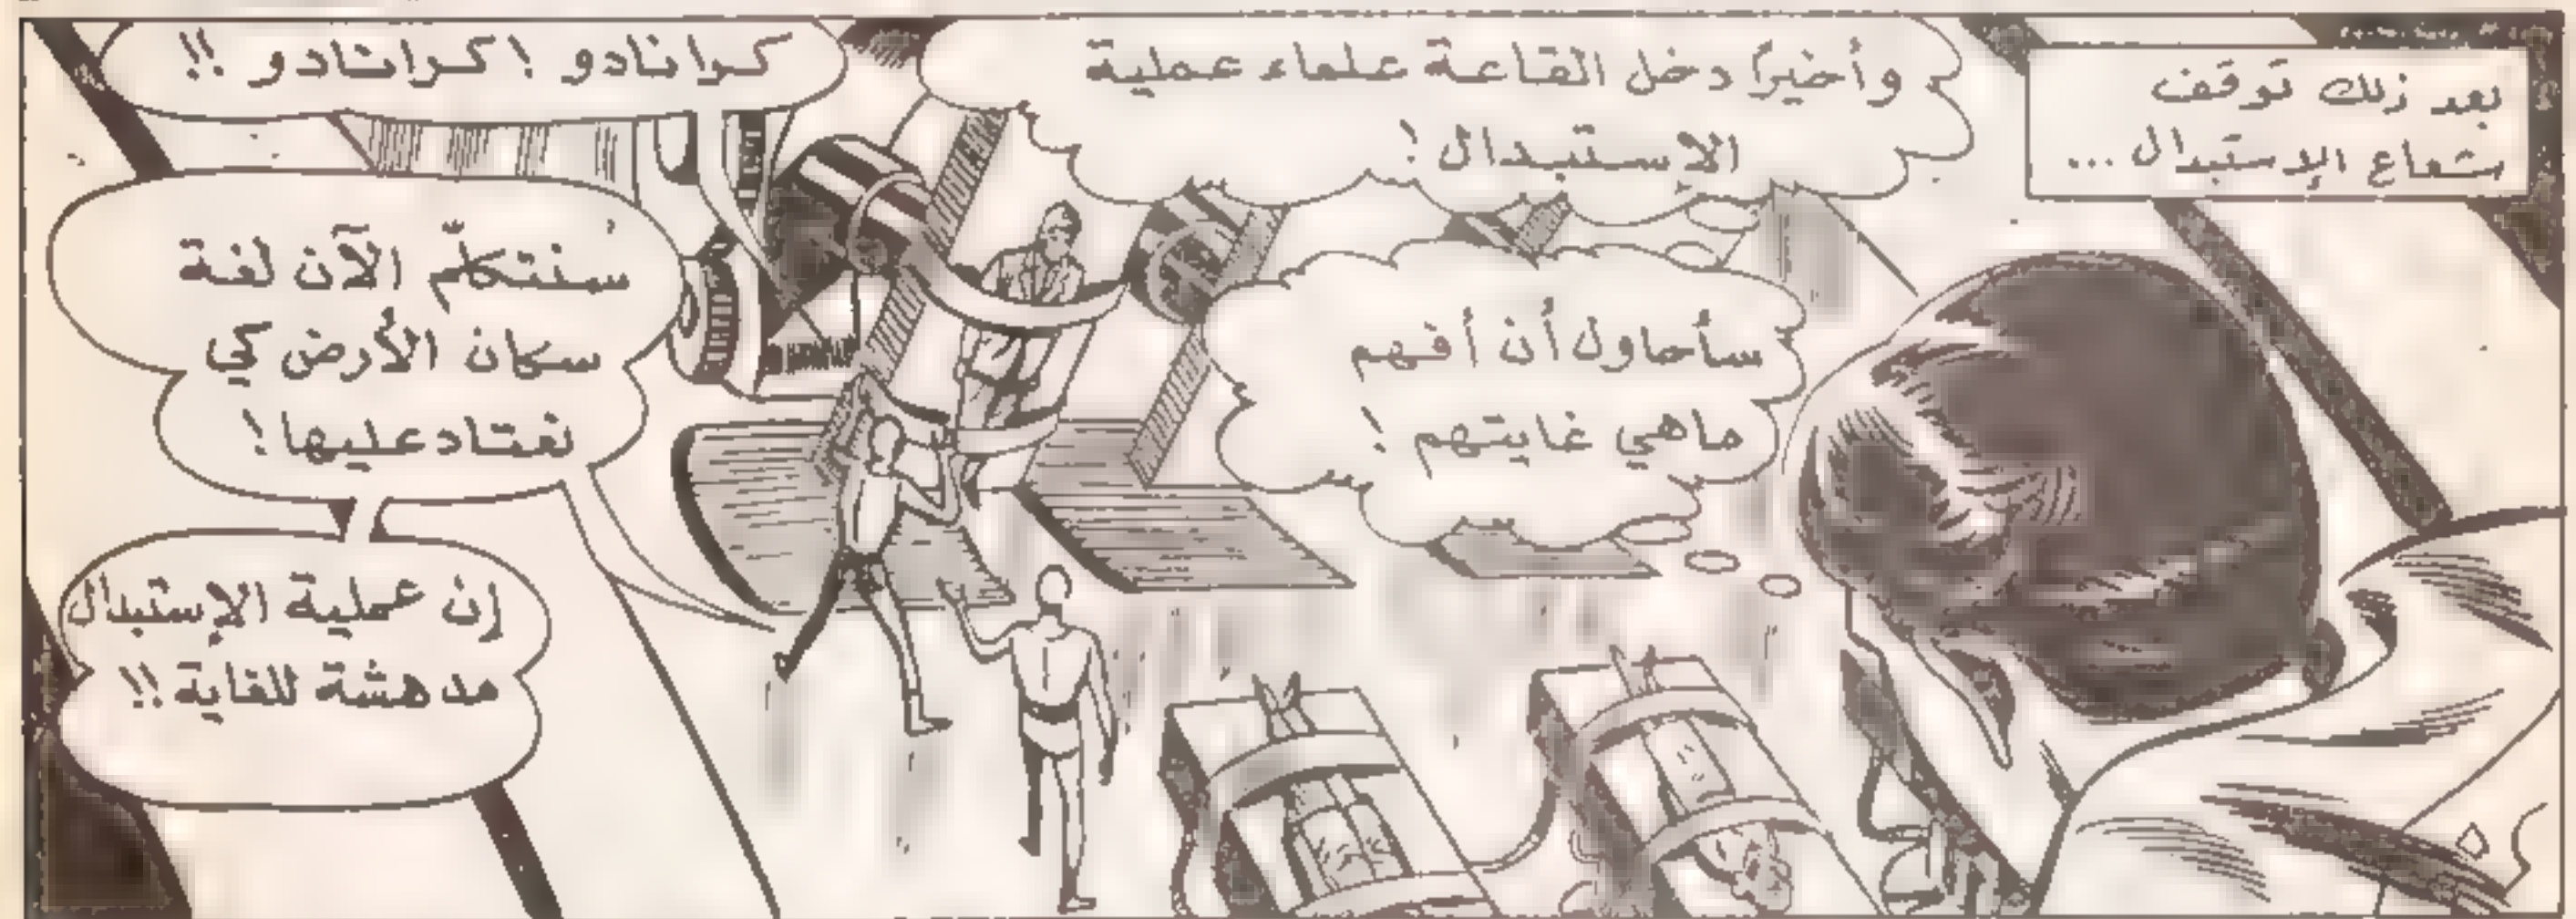 بعد ذلك توقف
شعاع الإستبدال ...
وأخيرًا دخل القاعة علماء عملية
الاستبدال !
سأحاول أن أفهم
ماهي غايتهم !
كرانادو ! كرانادو !!
سنتكلّم الآن لغة
سكان الأرض كي
نعتاد عليها !
إن عملية الإستبدال
مدهشة للغاية !!